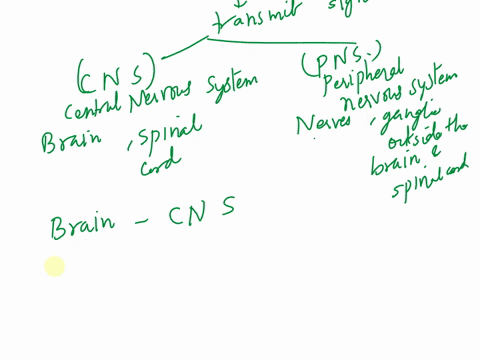 transmit
(CNS)
Central Nervous System
Brain, spinal
cord
(PNS.)
Peripheral
nervous system
Nerves, ganglia
outside the
brain &
spinal cord
Brain - CNS